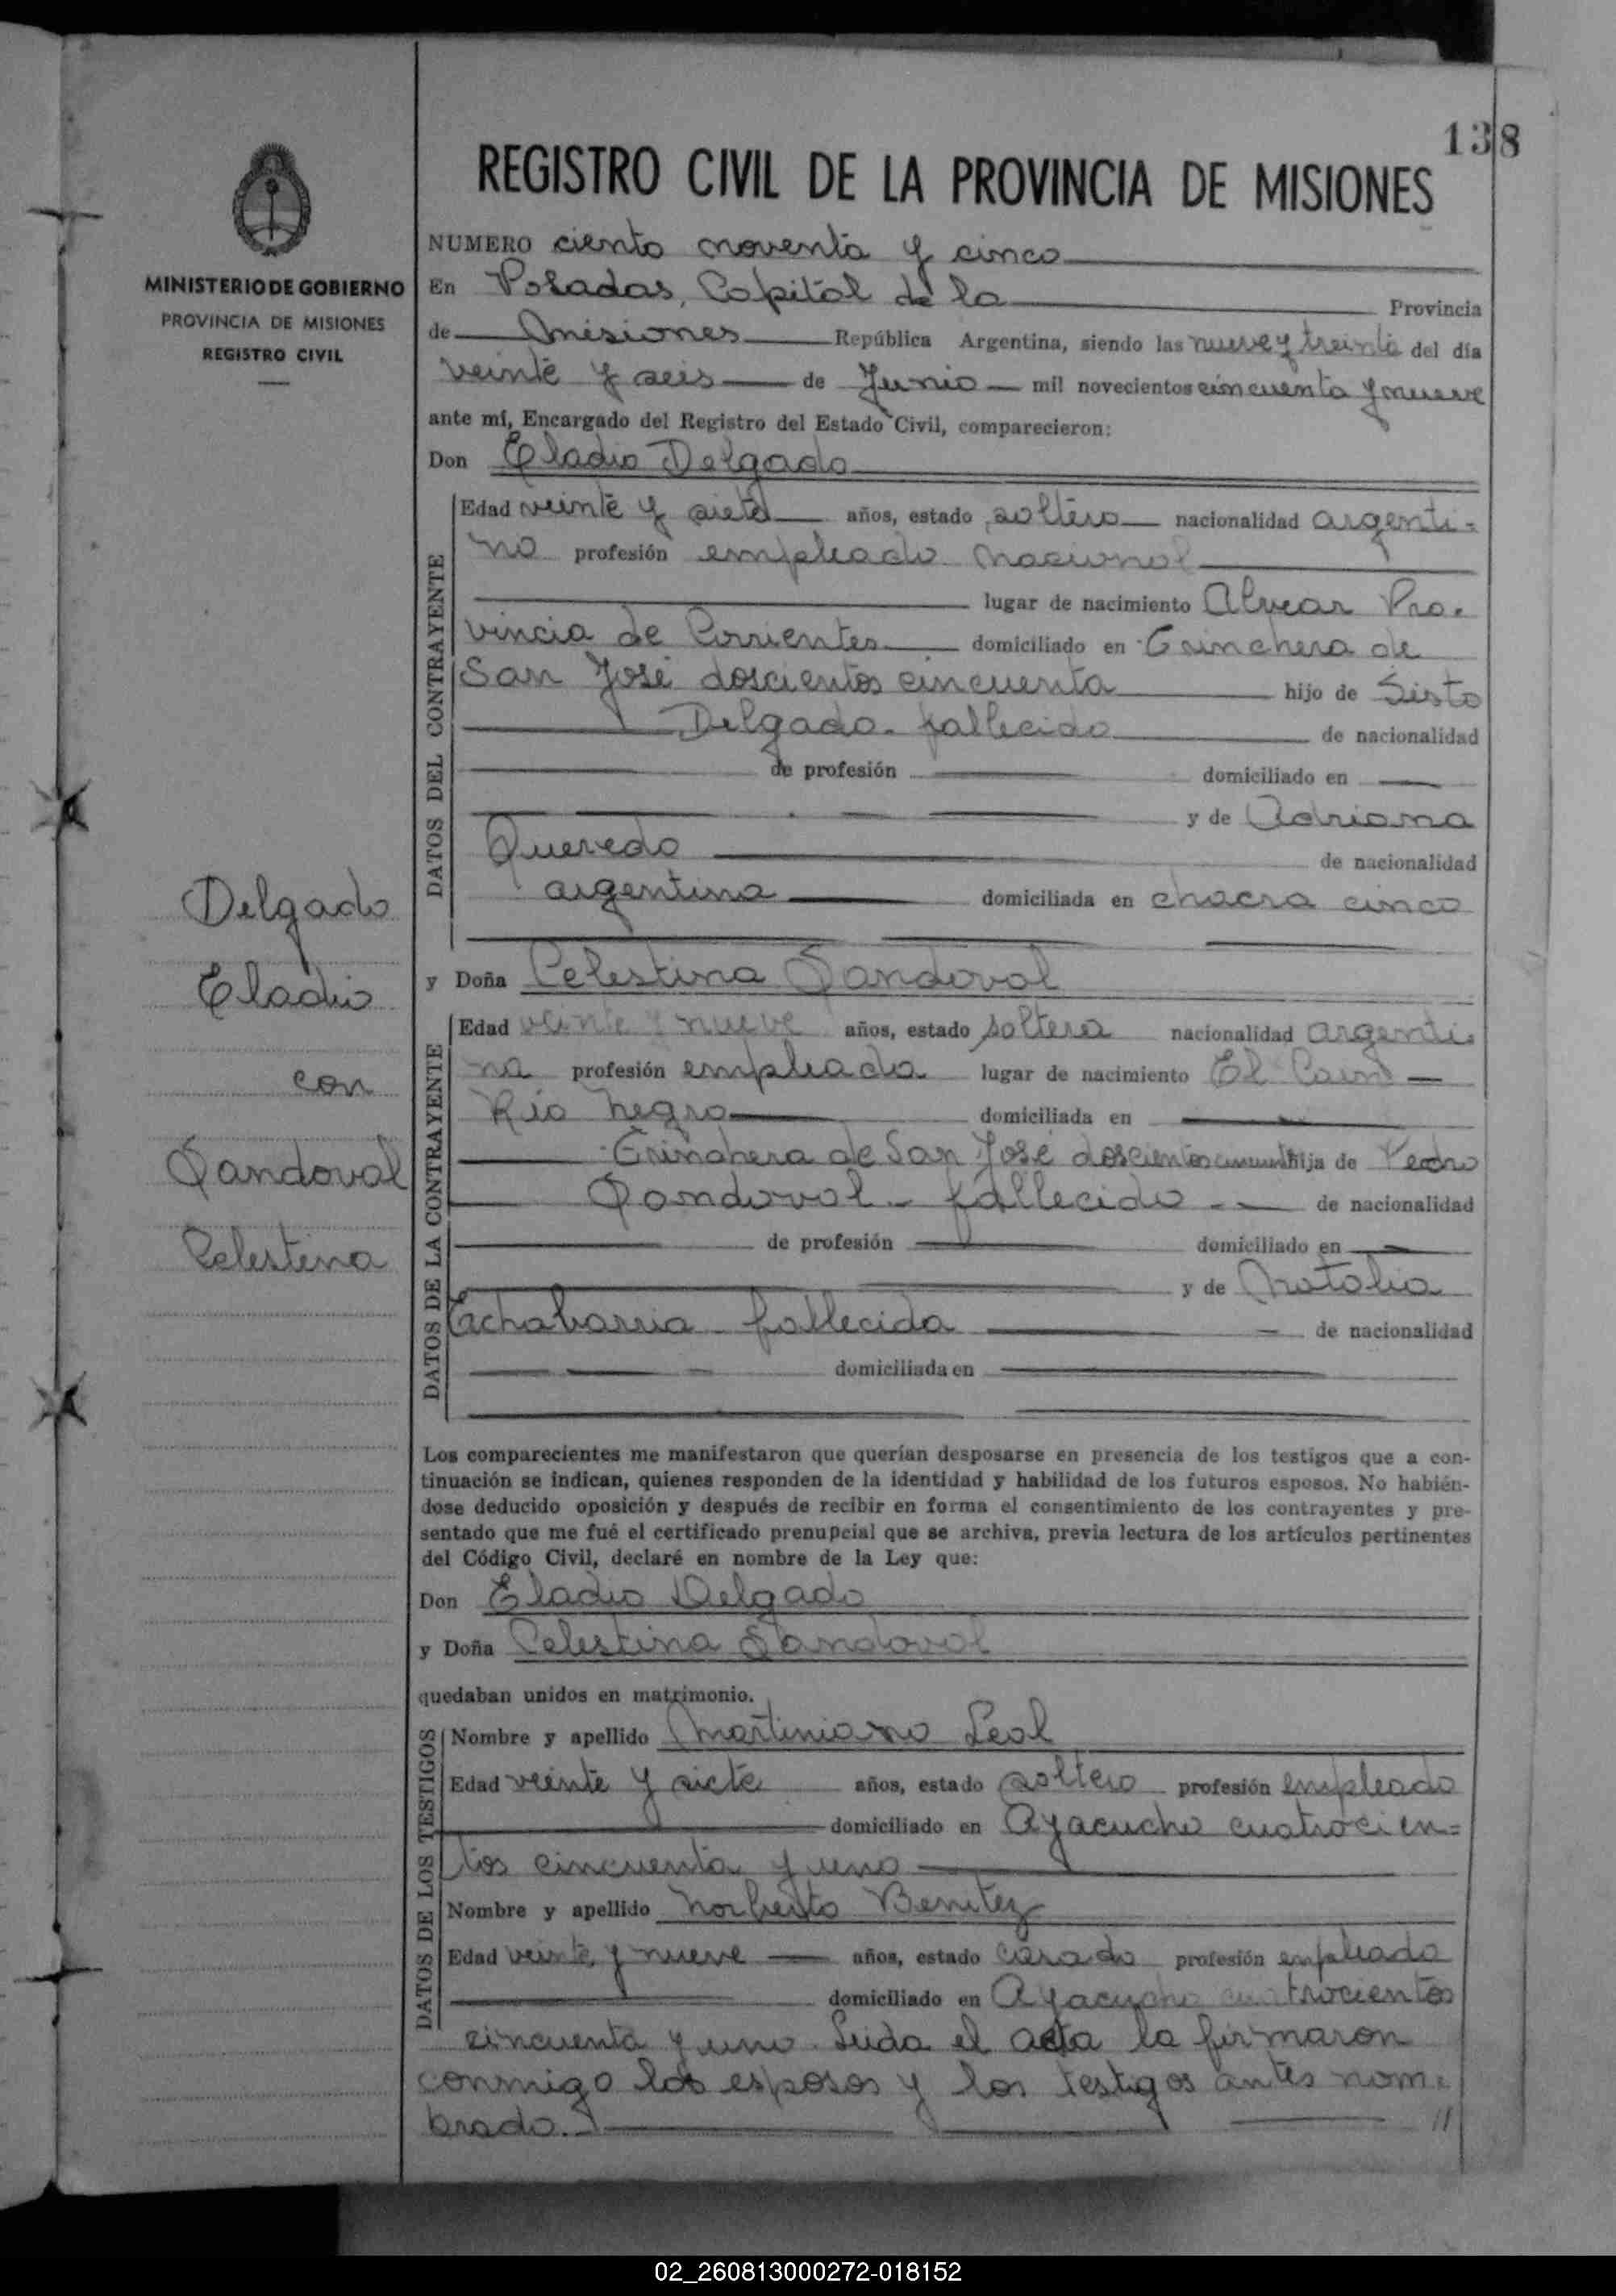 138
REGISTRO CIVIL DE LA PROVINCIA DE MISIONES
MINISTERIO DE GOBIERNO
PROVINCIA DE MISIONES
REGISTRO CIVIL
NUMERO ciento noventa y cinco
En Posadas, Capital de la Provincia
de Misiones República Argentina, siendo las nueve y treinta del día
veinte y seis de Junio mil novecientos cincuenta y nueve
ante mí, Encargado del Registro del Estado Civil, comparecieron:
Don Eladio Delgado
DATOS DEL CONTRAYENTE
Edad veinte y siete años, estado soltero nacionalidad argenti-
no profesión empleado nacional
lugar de nacimiento Alvear Pro-
vincia de Corrientes domiciliado en Trinchera de
San José doscientos cincuenta hijo de Sisto
Delgado - fallecido de nacionalidad
de profesión domiciliado en
y de Adriana
Quevedo de nacionalidad
argentina domiciliada en chacra cinco
Delgado
Eladio
con
Sandoval
Celestina
y Doña Celestina Sandoval
DATOS DE LA CONTRAYENTE
Edad veinte y nueve años, estado soltera nacionalidad argenti-
na profesión empleada lugar de nacimiento El Cain
Río Negro domiciliada en
Trinchera de San José doscientos cincuenta hija de Pedro
Sandoval - fallecido de nacionalidad
de profesión domiciliado en
y de Natalia
Echabarria fallecida de nacionalidad
domiciliada en
Los comparecientes me manifestaron que querían desposarse en presencia de los testigos que a con-
tinuación se indican, quienes responden de la identidad y habilidad de los futuros esposos. No habién-
dose deducido oposición y después de recibir en forma el consentimiento de los contrayentes y pre-
sentado que me fué el certificado prenupcial que se archiva, previa lectura de los artículos pertinentes
del Código Civil, declaré en nombre de la Ley que:
Don Eladio Delgado
y Doña Celestina Sandoval
quedaban unidos en matrimonio.
DATOS DE LOS TESTIGOS
Nombre y apellido Martiniano Leal
Edad veinte y siete años, estado soltero profesión empleado
domiciliado en Ayacucho cuatrocien=
tos cincuenta y uno
Nombre y apellido Norberto Benitez
Edad veinte y nueve años, estado casado profesión empleado
domiciliado en Ayacucho cuatrocientos
cincuenta y uno. Leida el acta la firmaron
conmigo los esposos y los testigos antes nom-
brado. //
02_260813000272-018152